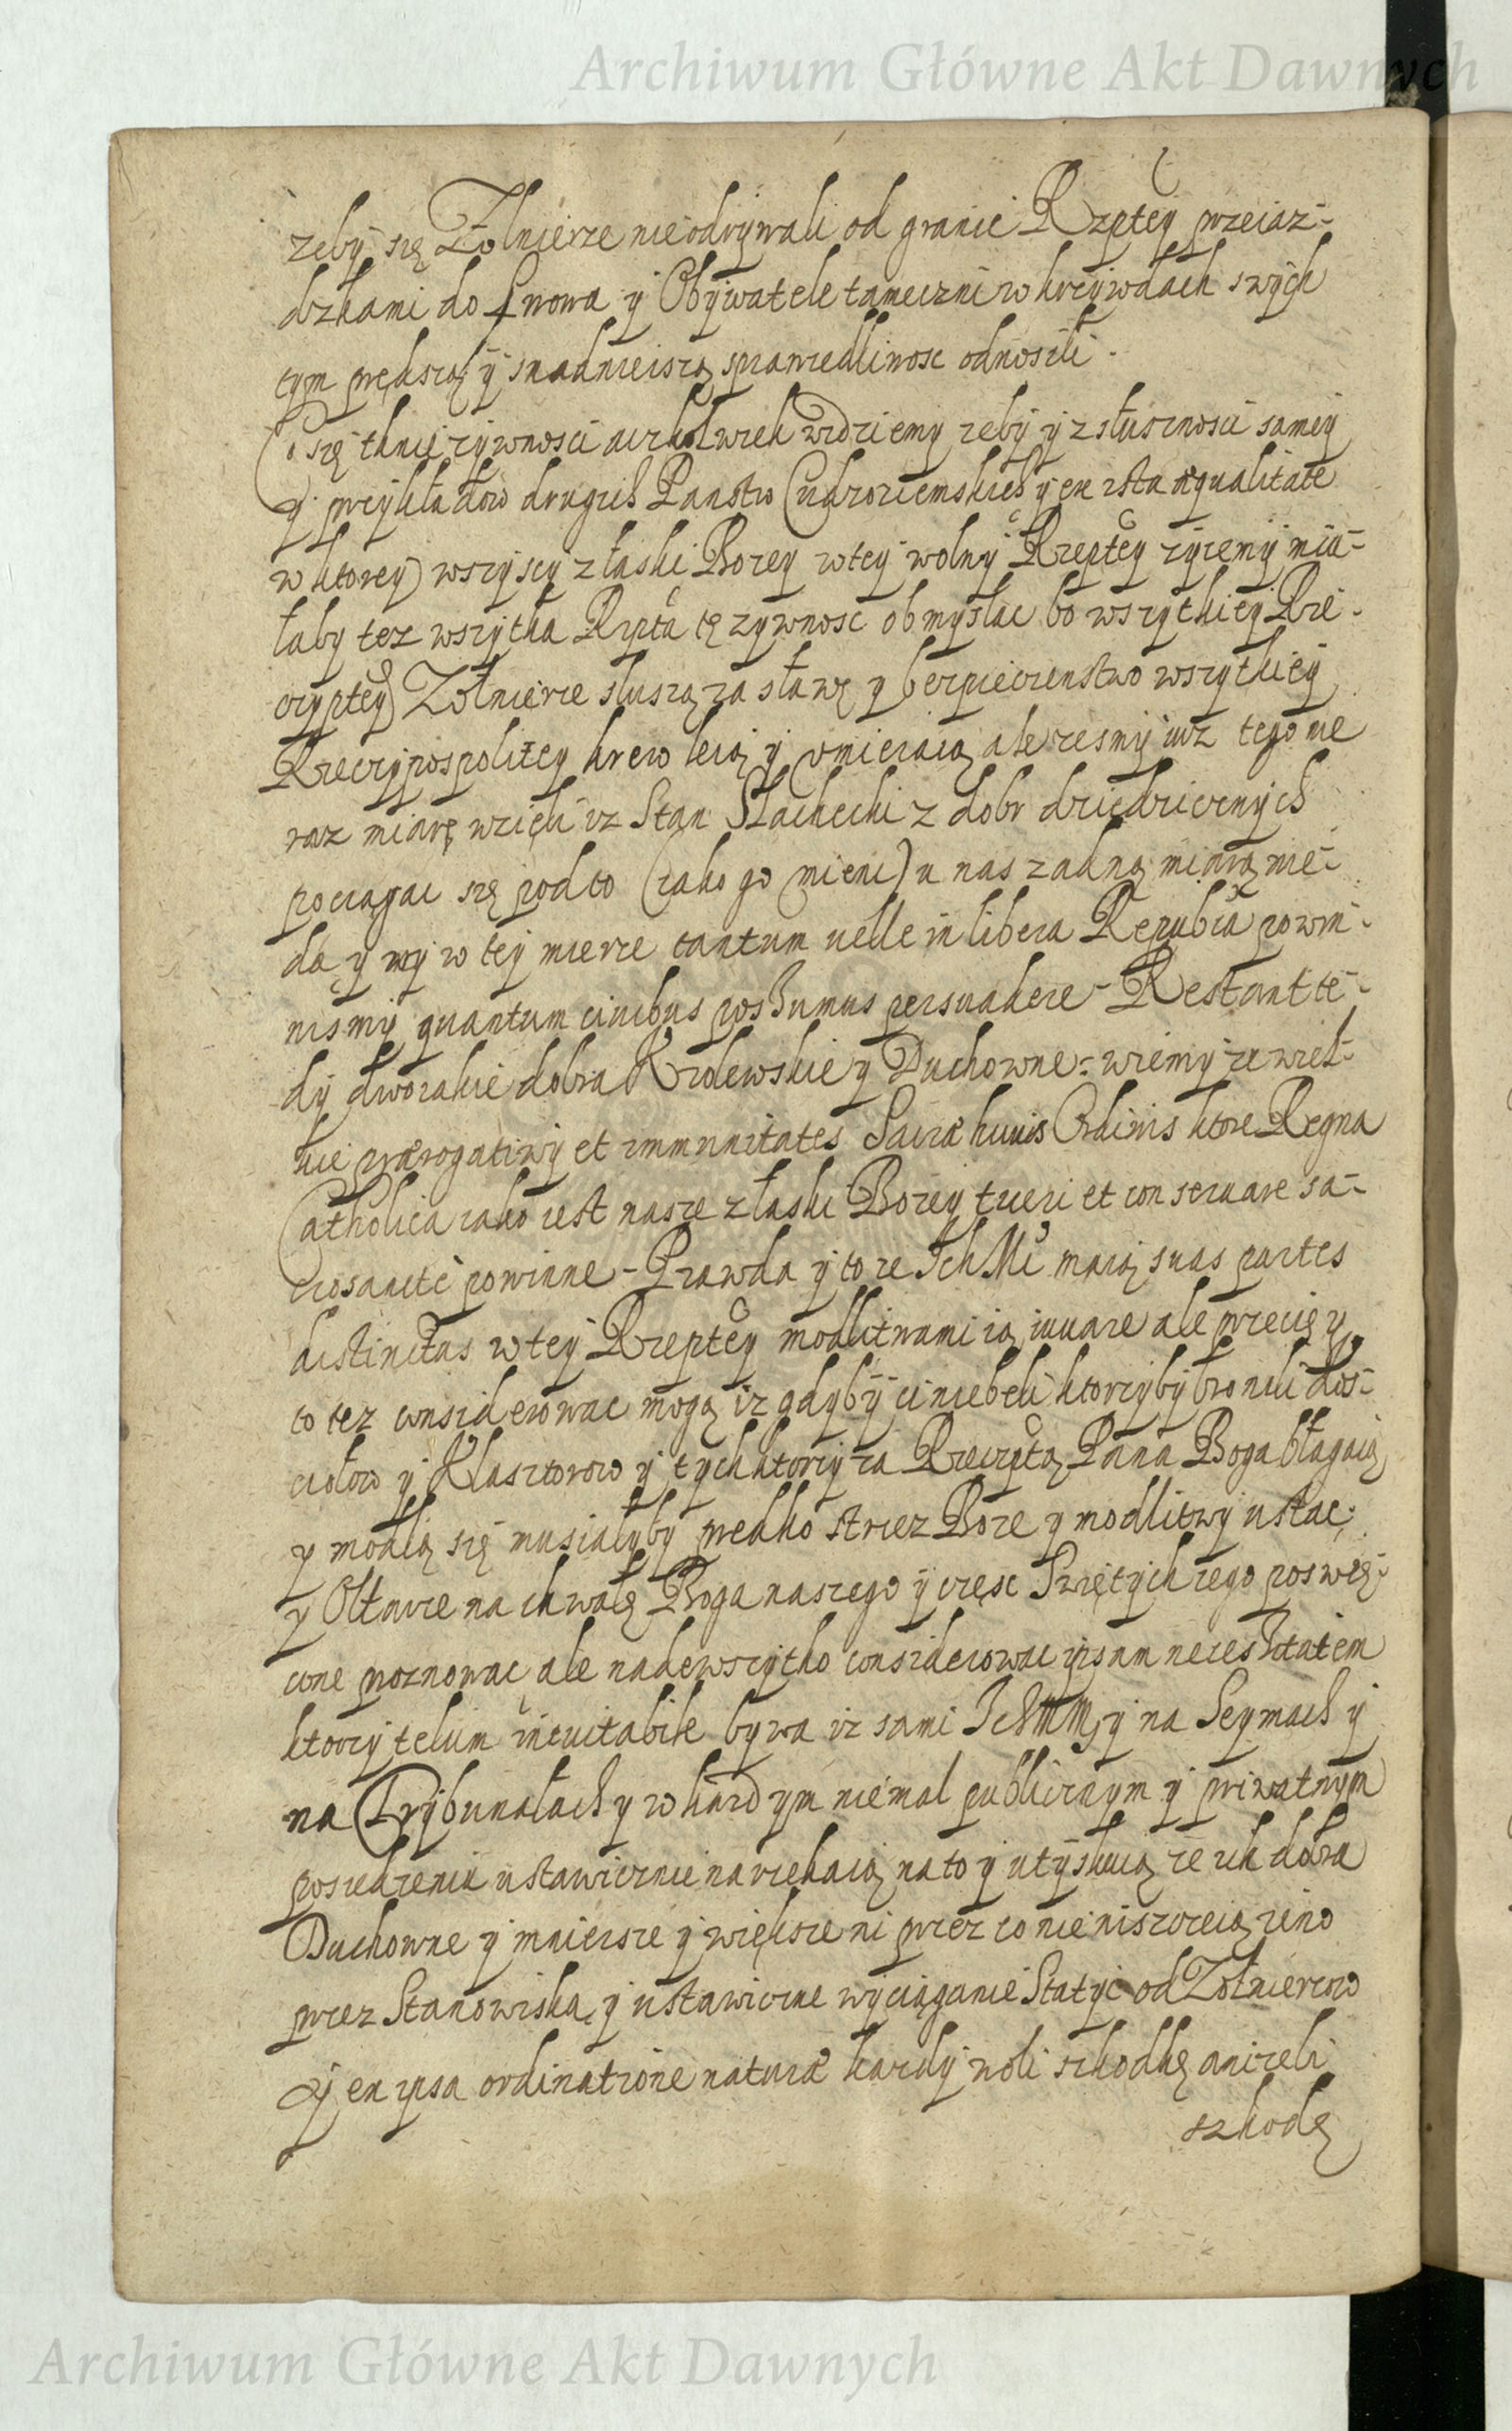 Archiwum Główne Akt Dawnych
zeby się Zołnierze nieodrywali od granic Rzptey przeiaz-
dzkami do Lwowa y Obywatele tameczni w krzywdach swych
tym prędszą y snadnieiszą sprawiedliwosc odnosili.
Co się tknie zywnosci aczkolwiek widziemy zeby y z słusznosci samey
y przykładow drugich Panstw Cudzoziemskich y ex ista æqualitate
w ktorey wszyscy z łaski Bozey w tey wolny Rzeptey zyiemy mia-
łaby tez wszytka Rzpta tę zywnosc obmyslac bo wszytkiey Rze-
czyptey Zołnierze słuszą za sławę y bezpieczenstwo wszytkiey
Rzeczypospolitey krew leią y umieraią ale zesmy iuz tego nie
raz miarę wzięli iz Stan Slachecki z dobr dziedzicznych
pociągac się pod to (iako go mieni) u nas zadną miarą nie-
da y my w tey mierze tantum uelle in libera Republca powin-
nismy quantum ciuibus possumus persuadere - Restant te-
dy dwoiakie dobra Krolewskie y Duchowne: wiemy ze wiel-
kie prærogatiwy et immunitates Sacræ huius Ordinis ktore Regna
Catholica iako iest nasze z łaski Bozey tueri et conseruare sa-
crosancte powinne - Prawda y to ze Ich Mć maią suas partes
distinctas w tey Rzeptey modlitwami ią iuuare ale przecię y
to tez considerowac mogą iz gdyby ci niebeli ktorzyby bronili kos-
ciołow y Klasztorow y tych ktorzy za Rzeczptą Pana Boga błagaią
y modlą się musiałyby prędko strzez Boze y modlitwy ustac;
y Ołtarze na chwałę Boga naszego y czesc Swiętych iego poswię-
cone proznowac ale nadewszytko considerowac ipsam necessitatem
ktory telum ineuitabile bywa iz sami IchMM y na Seymach y
na Trybunałach y w kazdym niemal publicznym y priwatnym
posiedzeniu ustawicznie narzekaią na to y utyskuią ze ich dobra
Duchowne y mnieisze y większe ni przez co nie niszczeią ieno
przez Stanowiska y ustawiczne wyciąganie Statyi od Zołnierzow
y ex ipsa ordinatione naturæ kazdy woli szkodkę anizeli
szkodę
Archiwum Główne Akt Dawnych